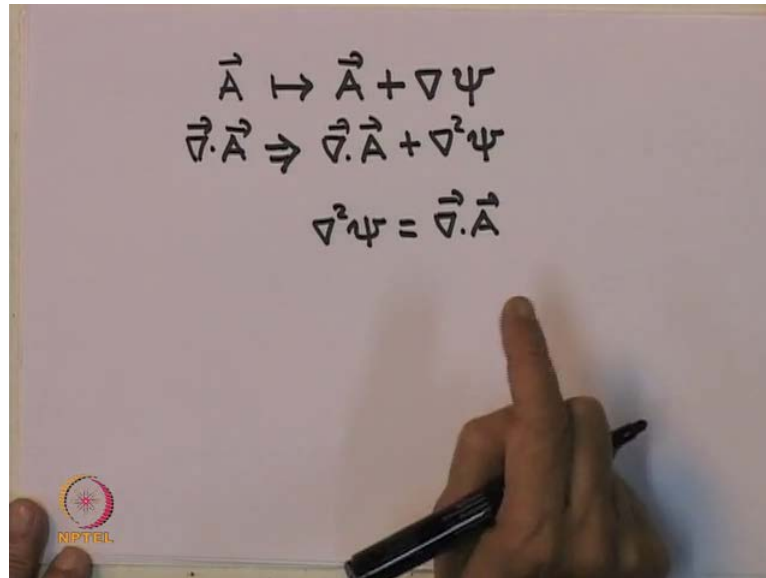 A⃗ ↦ A⃗ + ∇ψ
∇⃗.A⃗ ⇒ ∇⃗.A⃗ + ∇²ψ
∇²ψ = ∇⃗.A⃗
NPTEL